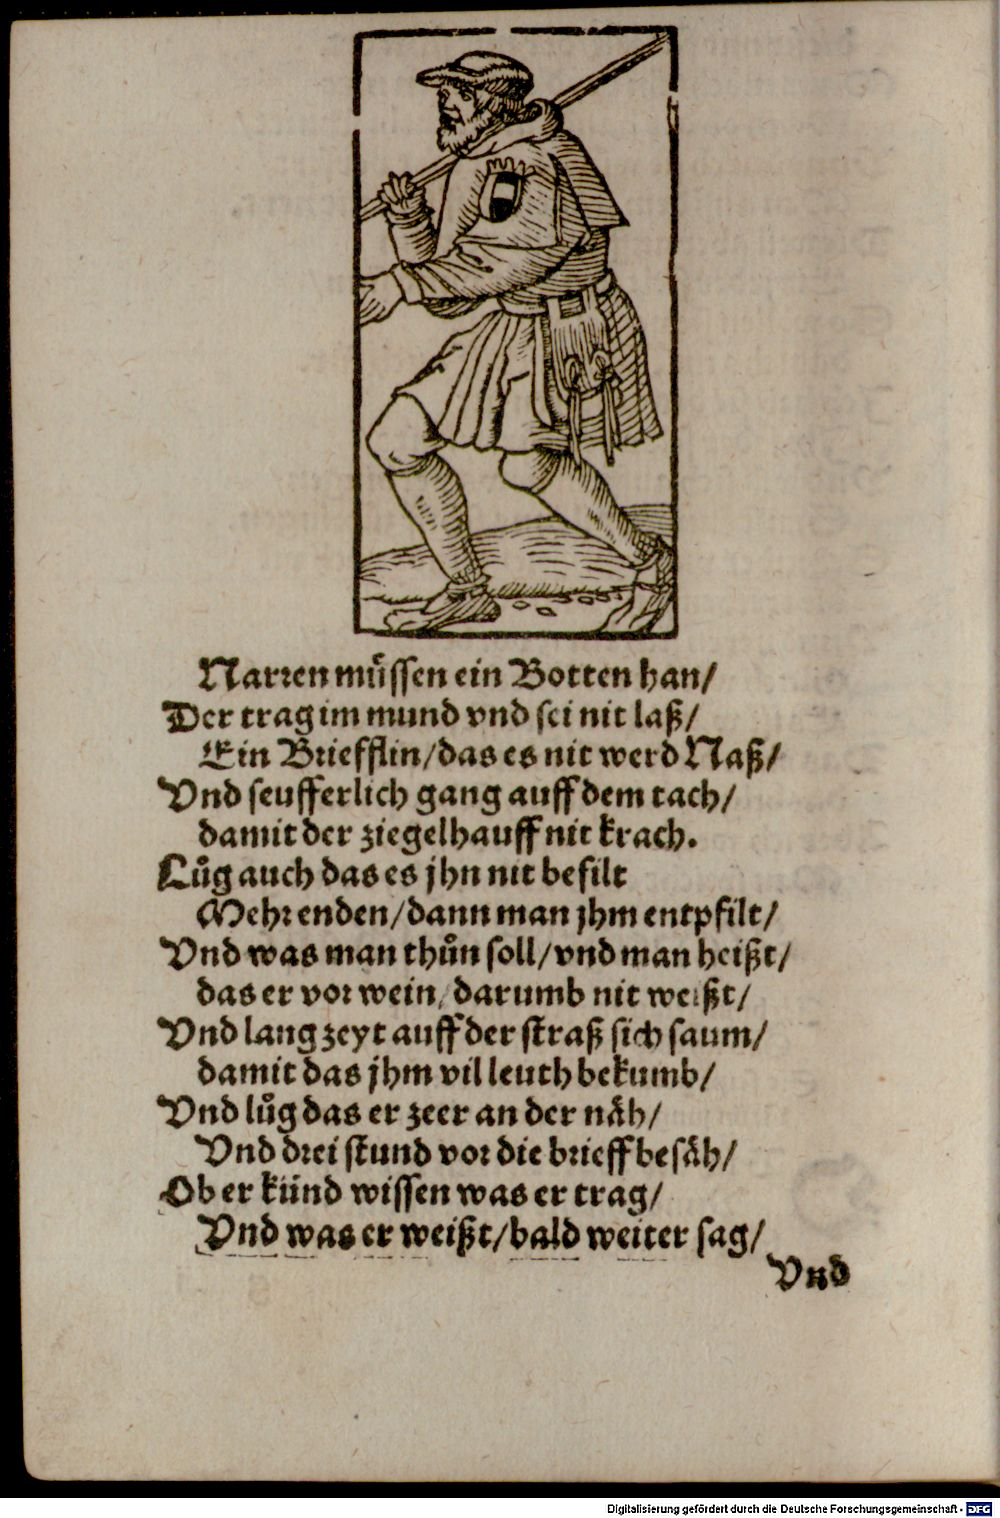 Narren muͤssen ein Botten han/
Der trag im mund vnd sei nit laß/
Ein Briefflin/das es nit werd Naß/
Vnd seufferlich gang auff dem tach/
damit der ziegelhauff nit krach.
Luͦg auch das es jhn nit befilt
Mehr enden/dann man jhm entpfilt/
Vnd was man thuͦn soll/vnd man heißt/
das er vor wein/darumb nit weißt/
Vnd lang zeyt auff der straß sich saum/
damit das jhm vil leuth bekumb/
Vnd luͦg das er zeer an der naͤh/
Vnd drei stund vor die brieff besaͤh/
Ob er kuͤnd wissen was er trag/
Vnd was er weißt/bald weiter sag/
Vnd
Digitalisierung gefördert durch die Deutsche Forschungsgemeinschaft - DFG